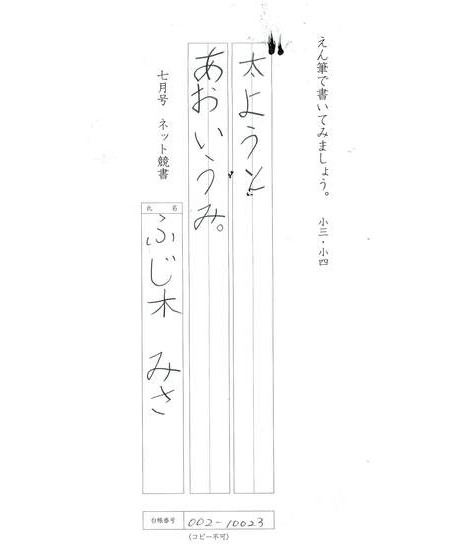 えん筆で書いてみましょう。 小三・小四
太ようと
あおいうみ。
七月号 ネット競書
氏名
ふじ木 みさ
台帳番号 002-10023
(コピー不可)